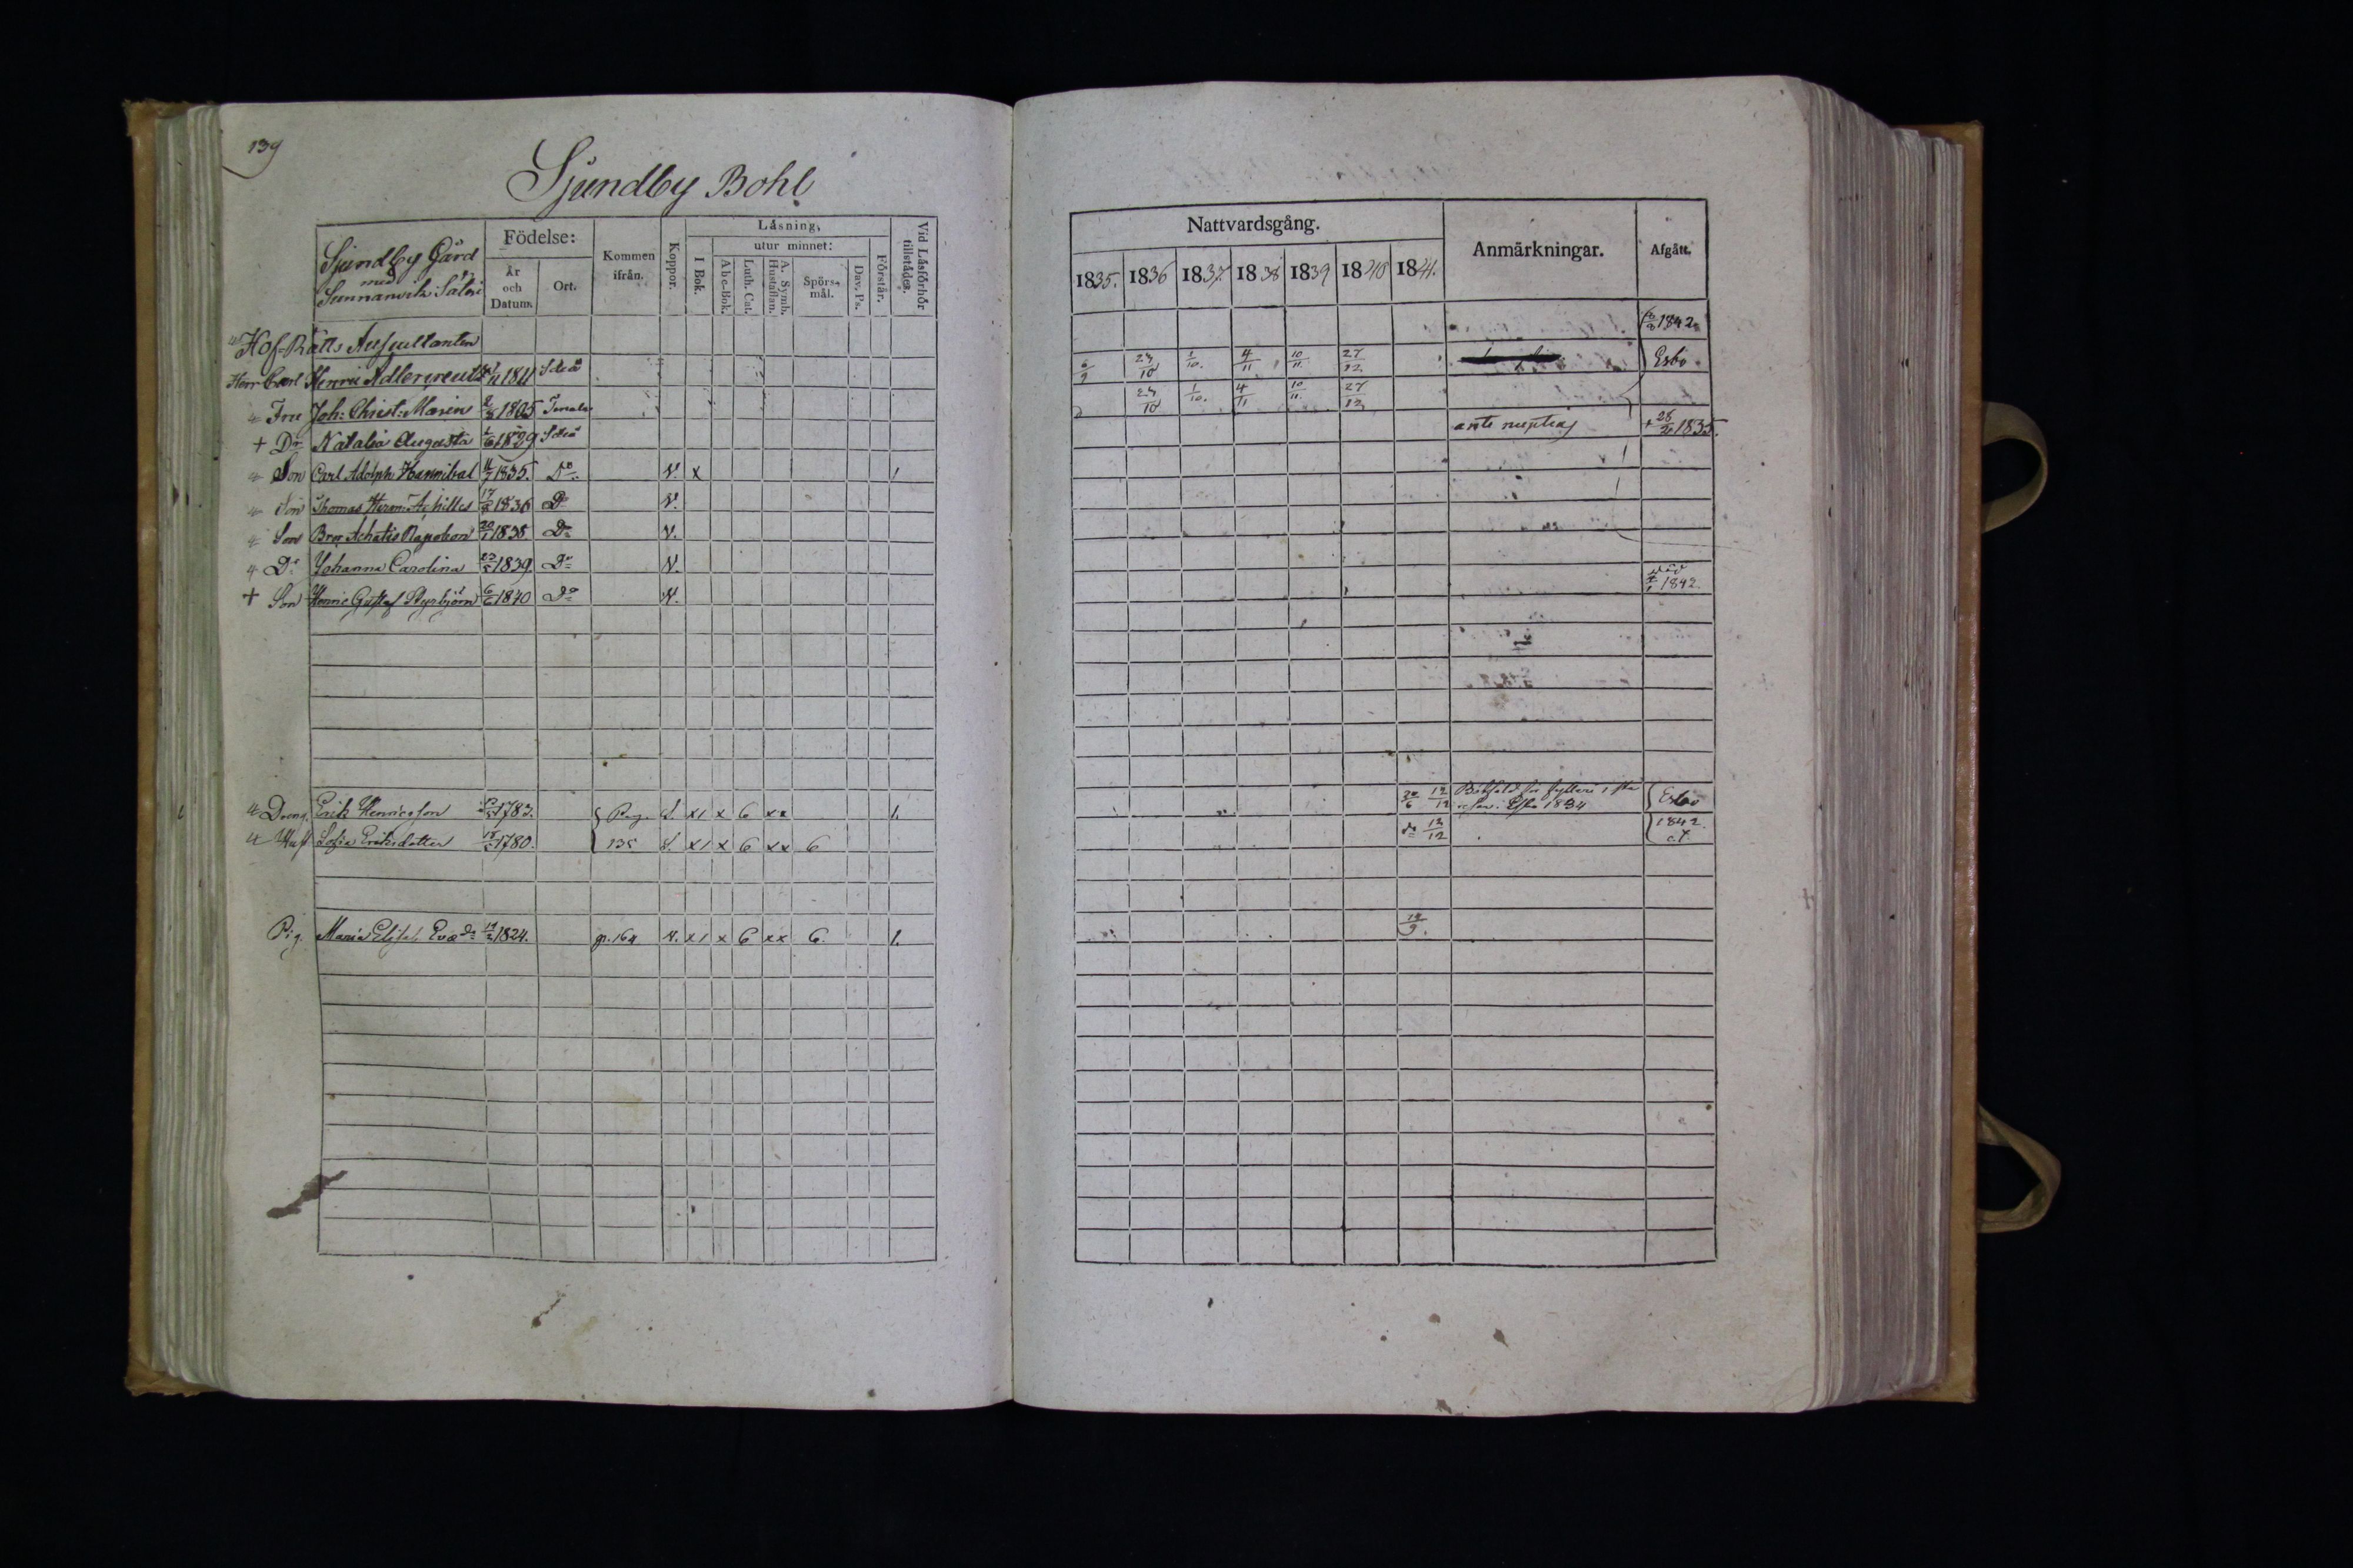 139
Sjundby Bohl
Sjundby Gård
med
Sunnanvik Säteri
Födelse:
År och Datum.
Ort.
Kommen ifrån.
Koppor.
Läsning,
I Bok.
utur minnet:
Abc-Bok.
Luth. Cat.
A. Symb. Hustaflan.
Spörsmål.
Dav. Ps.
Förstår.
Vid Läsförhör tillstädes.
Hof-Rätts Auscultanten
Herr Carl Henric Adlercreutz 1811
Fru Joh: Christ: Maren 1805
+ Dr Natalia Augusta 1829
Son Carl Adolph Hannibal 11/7 1835. Do V. x 1
Son Thomas Herm: Achilles 1836 Do V.
Son Bror Achates Napoleon 1838 Do V.
Dr Johanna Carolina 1839. Do V.
+ Son Henric Gustaf Styrbjörn 6/6 1840 Do V.
Dreng. Erik Henricsson 1783. Pag. S. x1 x 6 xx 1.
Hust Sofia Eriksdotter 1780. 135 S. x1 x 6 xx 6
Pig. Maria Elisab. Evadr 1824. p. 164 V. x1 x 6 xx 6. 1.
Nattvardsgång.
Anmärkningar.
Afgått.
1835. 1836 1837. 1838 1839 1840 1841.
1842
6/9 23/10 1/10. 4/11 10/11. 27/12 Esbo
23/10 1/10. 4/11 10/11. 27/12
ante nuptias + 28/2 1835.
död
1842.
20/6 12/12 för fylleri 1834 Esbo
do 12/12 1842.
19/9.